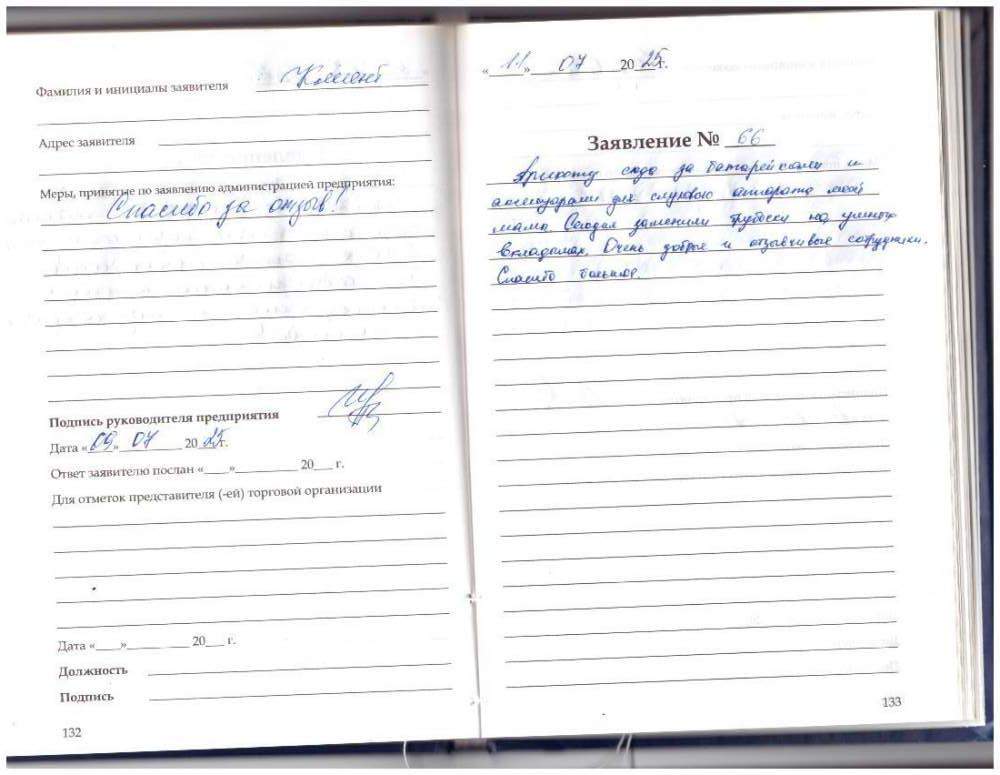 Фамилия и инициалы заявителя Клиент
Адрес заявителя
Меры, принятые по заявлению администрацией предприятия:
Спасибо за отзыв!
Подпись руководителя предприятия
Дата «09» 07 2025г.
Ответ заявителю послан «____»__________ 20___ г.
Для отметок представителя (-ей) торговой организации
Дата «____»__________ 20___ г.
Должность
Подпись
132
«11» 07 2025г.
Заявление № 66
Прихожу сюда за батарейками и
аксессуарами для слухового аппарата моей
мамы. Сегодня заменили трубочки на ушных
вкладышах. Очень добрые и отзывчивые сотрудники.
Спасибо большое.
133